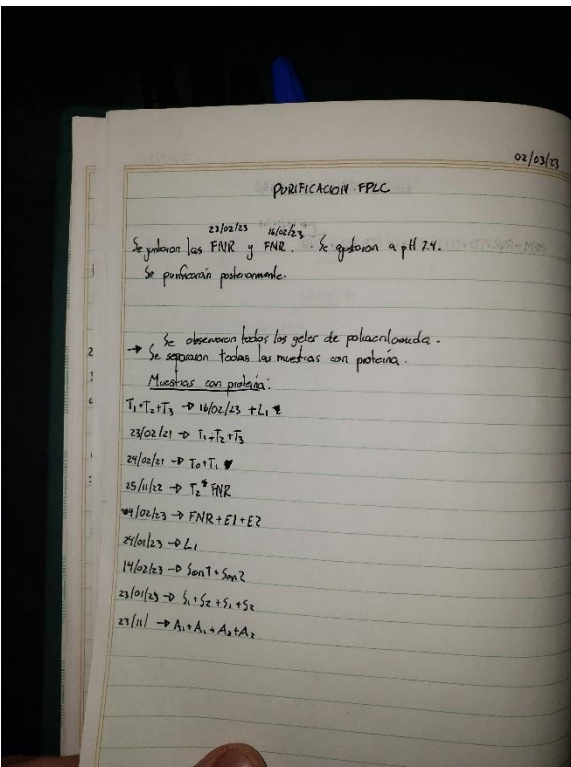 02/03/23
PURIFICACION FPLC
23/02/23 16/02/23
Se juntaron las FNR y FNR. Se ajustaron a pH 7.4.
Se purificarán posteriormente.
Se observaron todos los geles de poliacrilamida.
→ Se separaron todas las muestras con proteína.
Muestras con proteína:
T1+T2+T3 → 16/02/23 + L1
23/02/21 → T1+T2+T3
24/02/21 → T0+T1
25/11/22 → T2* FNR
09/02/23 → FNR+E1+E2
24/01/23 → L1
14/02/23 → Son1+Son2
23/01/23 → S1+S2+S1+S2
23/11/ → A1+A1+A2+A2